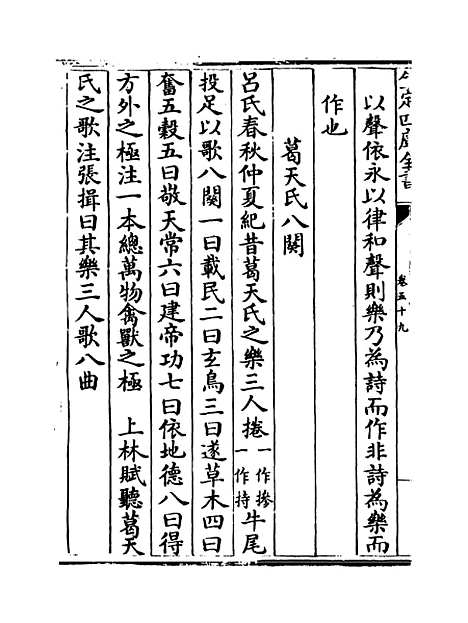 欽定四庫全書
卷五十九
以聲依永以律和聲則樂乃為詩而作非詩為樂而
作也
葛天氏八闋
呂氏春秋仲夏紀昔葛天氏之樂三人捲一作摻一作持牛尾
投足以歌八闋一曰載民二曰玄鳥三曰遂草木四曰
奮五穀五曰敬天常六曰建帝功七曰依地德八曰得
方外之極注一本總萬物禽獸之極　上林賦聽葛天
氏之歌注張揖曰其樂三人歌八曲